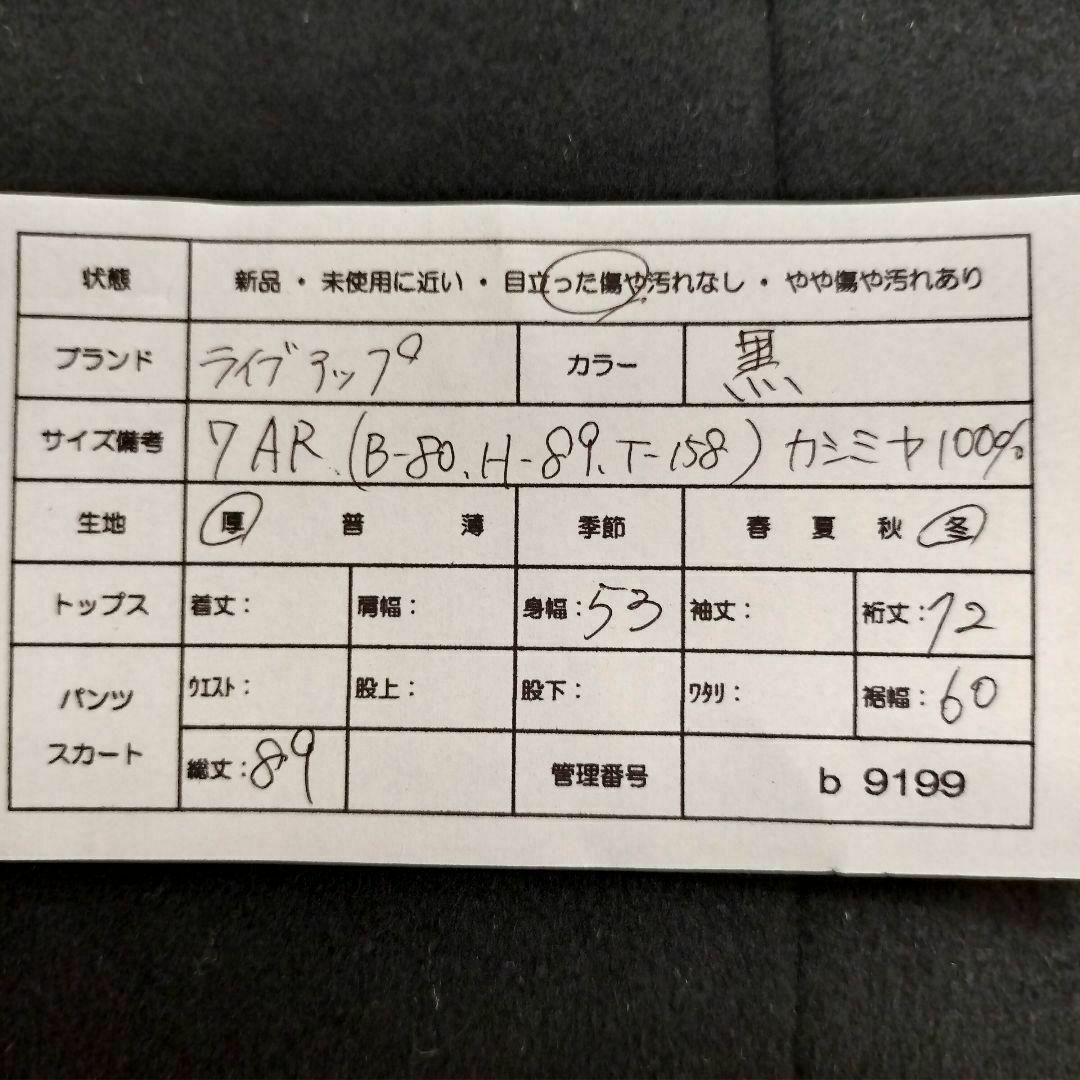 状態 新品 ・ 未使用に近い ・ 目立った傷や汚れなし ・ やや傷や汚れあり
ブランド ライブラップ カラー 黒
サイズ備考 7AR、(B-80、H-89、T-158) カシミヤ100%
生地 厚 普 薄 季節 春 夏 秋 冬
トップス 着丈: 肩幅: 身幅:53 袖丈: 裄丈:72
パンツ ウエスト: 股上: 股下: ワタリ: 裾幅:60
スカート 総丈:89 管理番号 b 9199